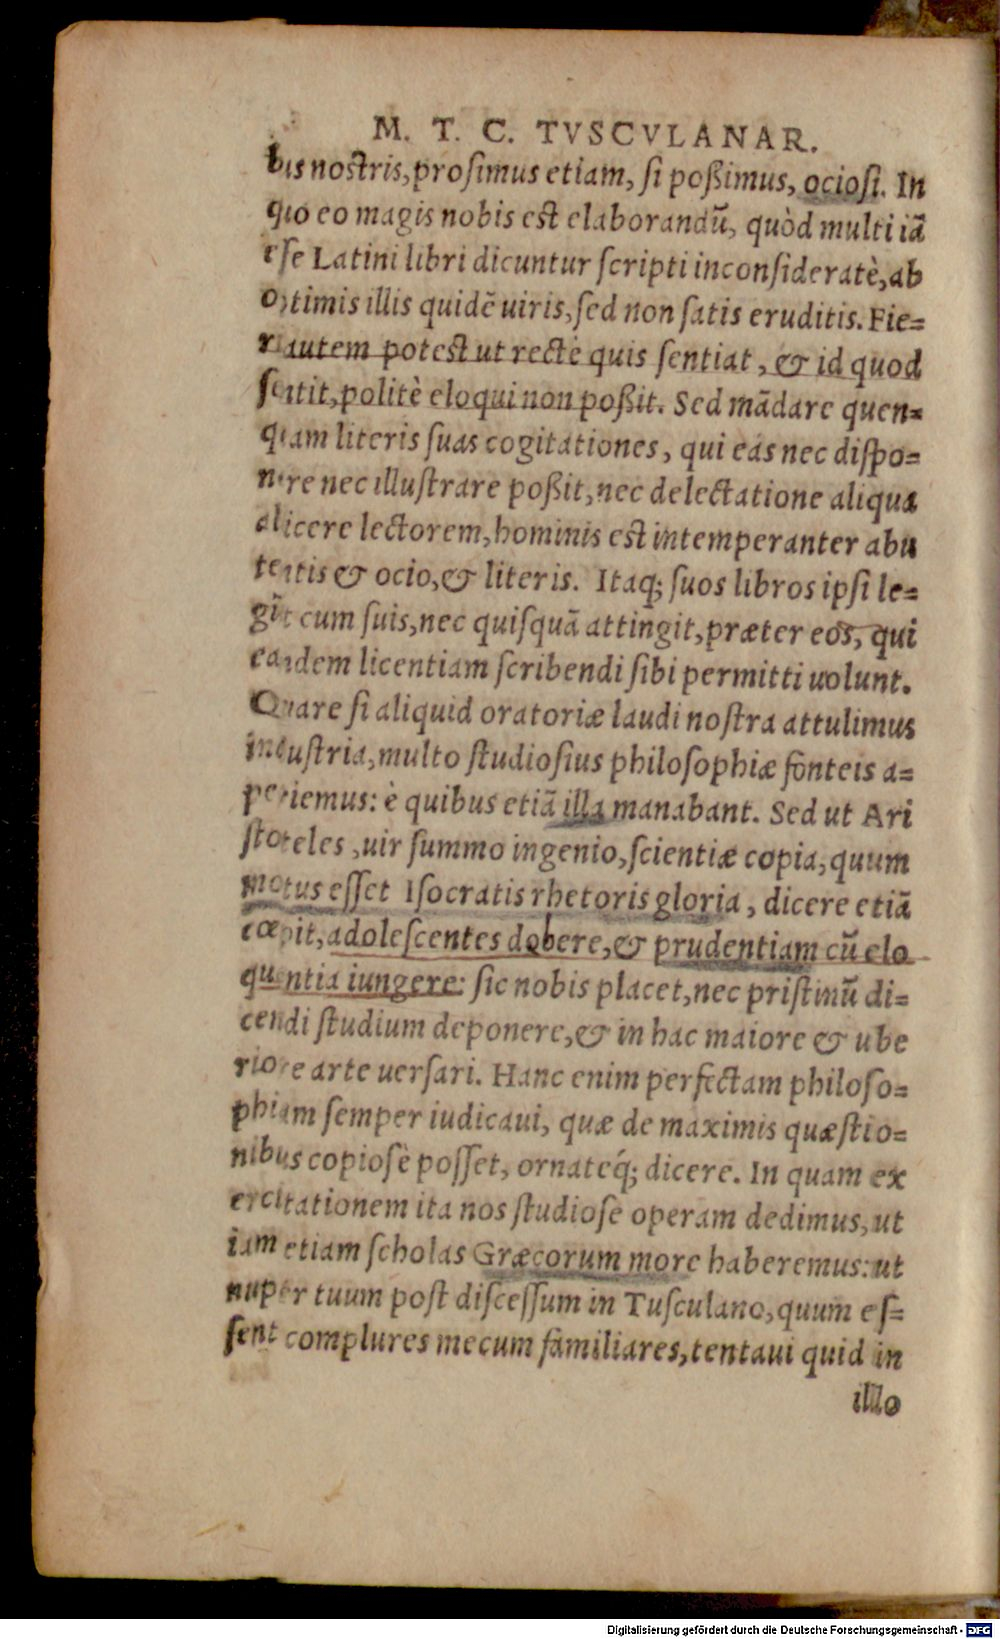 M. T. C. TVSCVLANAR.
bis nostris, prosimus etiam, si poßimus, ociosi. In
quo eo magis nobis est elaborandũ, quòd multi iã
esse Latini libri dicuntur scripti inconsideratè, ab
optimis illis quidẽ uiris, sed non satis eruditis. Fie=
ri autem potest ut rectè quis sentiat, & id quod
sentit, politè eloqui non poßit. Sed mãdare quen=
quam literis suas cogitationes, qui eas nec dispo=
nere nec illustrare poßit, nec delectatione aliqua
allicere lectorem, hominis est intemperanter abu
tentis & ocio, & literis. Itaq; suos libros ipsi le=
gũt cum suis, nec quisquã attingit, præter eos, qui
eandem licentiam scribendi sibi permitti uolunt.
Quare si aliquid oratoriæ laudi nostra attulimus
industria, multo studiosius philosophiæ fonteis a=
periemus: è quibus etiã illa manabant. Sed ut Ari
stoteles, uir summo ingenio, scientiæ copia, quum
motus esset Isocratis rhetoris gloria, dicere etiã
cœpit, adolescentes dobere, & prudentiam cũ elo
quentia iungere: sic nobis placet, nec pristinũ di=
cendi studium deponere, & in hac maiore & ube
riore arte uersari. Hanc enim perfectam philoso=
phiam semper iudicaui, quæ de maximis quæstio=
nibus copiosè posset, ornateq́; dicere. In quam ex
ercitationem ita nos studiose operam dedimus, ut
iam etiam scholas Græcorum more haberemus: ut
nuper tuum post discessum in Tusculano, quum es=
sent complures mecum familiares, tentaui quid in
illo
Digitalisierung gefördert durch die Deutsche Forschungsgemeinschaft - DFG